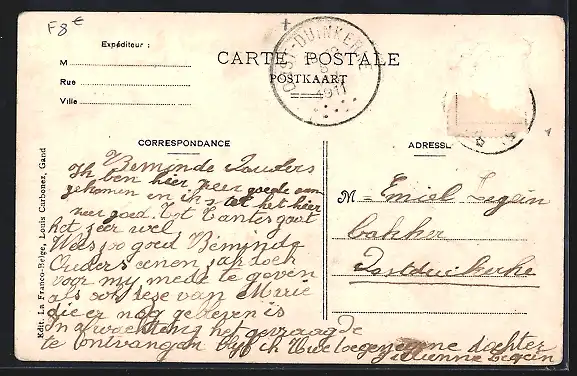 F8€
Expéditeur :
M
Rue
Ville
CARTE POSTALE
POSTKAART
OOST-DUINKERKE
1911
CORRESPONDANCE
ADRESSE
Beminde Ouders
Ik ben hier zeer goede aan
gekomen en ik het hier
zeer goed. tot Tantes gaat
het zeer wel,
Wees zoo goed Beminde
Ouders eenen
voor my mede te geven
als ook van Marie
die er nog gebleven is
In afwachting het gevraagde
te ontvangen blijf ik Uwe toegenegene dochter
Legein
M Emiel Legein
bakker
Oostduinkerke
Edit. La Franco-Belge, Louis Carbonez, Gand